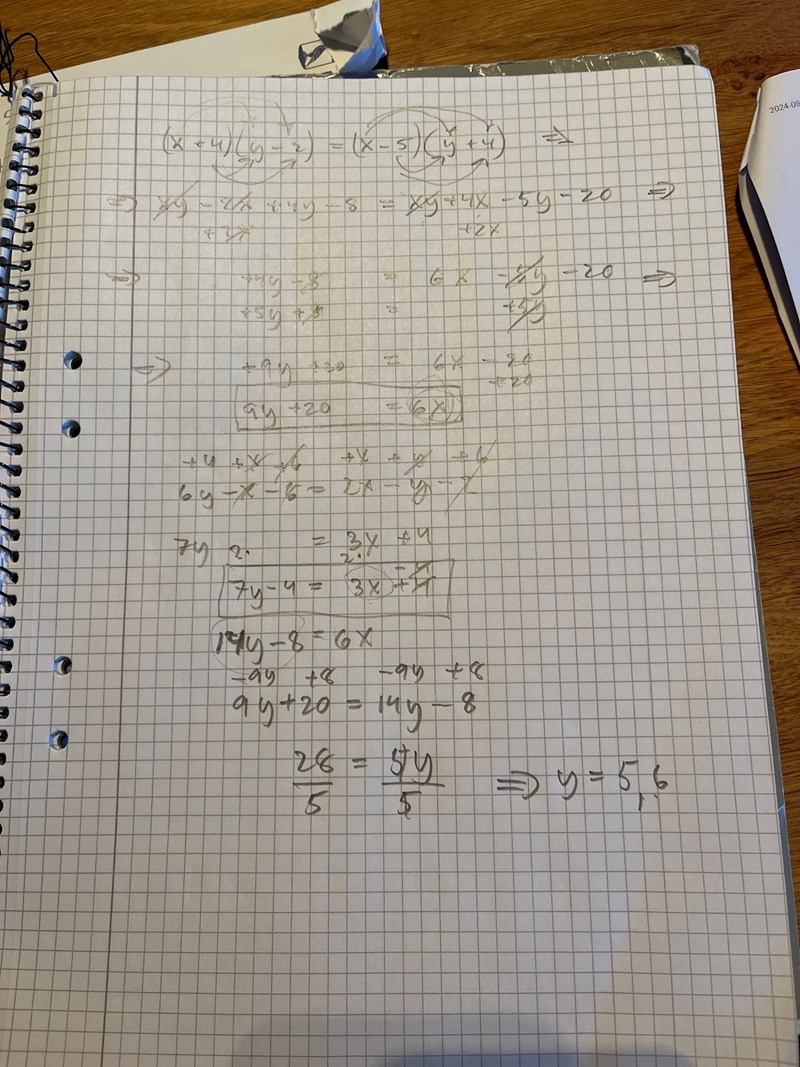 2024-09
(x+4)(y-2) = (x-5)(y+4) ⇒
⇒ xy - 2x + 4y - 8 = xy + 4x - 5y - 20 ⇒
+2x +2x
⇒ +4y - 8 = 6x - 5y - 20 ⇒
+5y + 8 = +5y
⇒ = 6x - 20
+20
9y + 20 = 6x
+4 + x + y +x + y + y
6y - x - = 2x - y -
7y = 3x + 4
2· 2· -4
7y - 4 = 3x + 4
14y - 8 = 6x
-9y +8 -9y +8
9y + 20 = 14y - 8
28 = 5y ⇒ y = 5,6
5 5